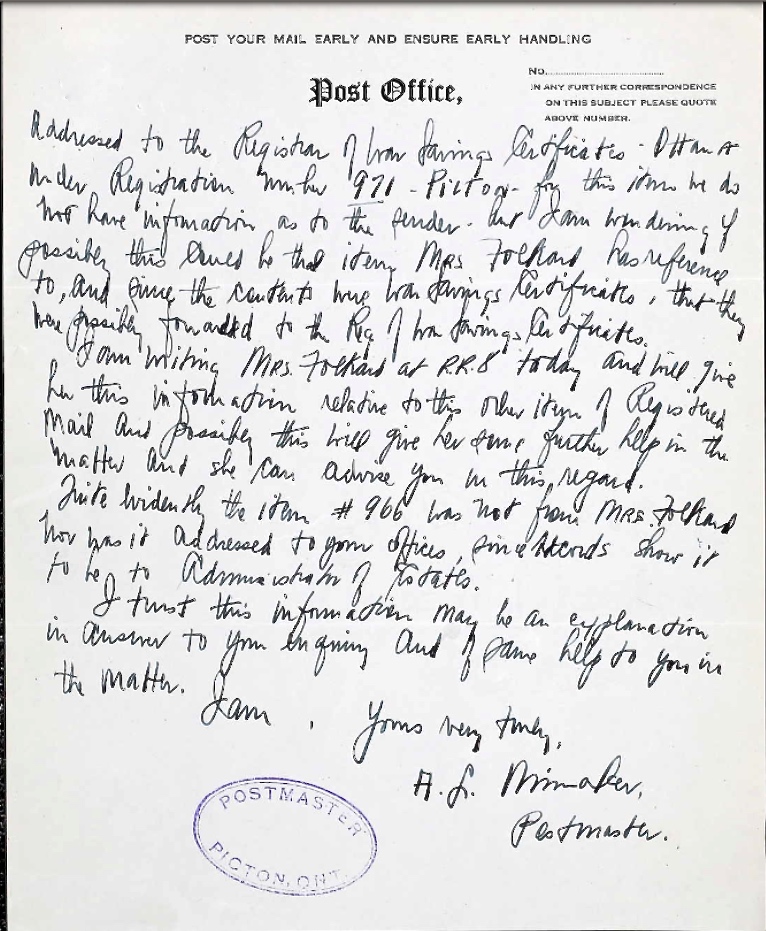 POST YOUR MAIL EARLY AND ENSURE EARLY HANDLING
No.
Post Office,
IN ANY FURTHER CORRESPONDENCE
ON THIS SUBJECT PLEASE QUOTE
ABOVE NUMBER.
Addressed to the Registrar of War Savings Certificates - Ottawa
under Registration number 971 - Picton - for this item we do
not have information as to the sender - but I am wondering if
possibly this could be that item Mrs Folkard has reference
to, and since the contents were War Savings Certificates, that they
were possibly forwarded to the Reg of War Savings Certificates.
I am writing Mrs. Folkard at R.R.8 today and will give
her this information relative to this other item of Registered
Mail and possibly this will give her some further help in the
matter and she can advise you in this regard.
Quite evidently the item # 966 was not from Mrs. Folkard
nor was it addressed to your offices, since records show it
to be to Administrator of Estates.
I trust this information may be an explanation
in answer to your enquiry and of some help to you in
the matter.
I am, Yours very truly,
A. L.
Postmaster.
POSTMASTER
PICTON, ONT.